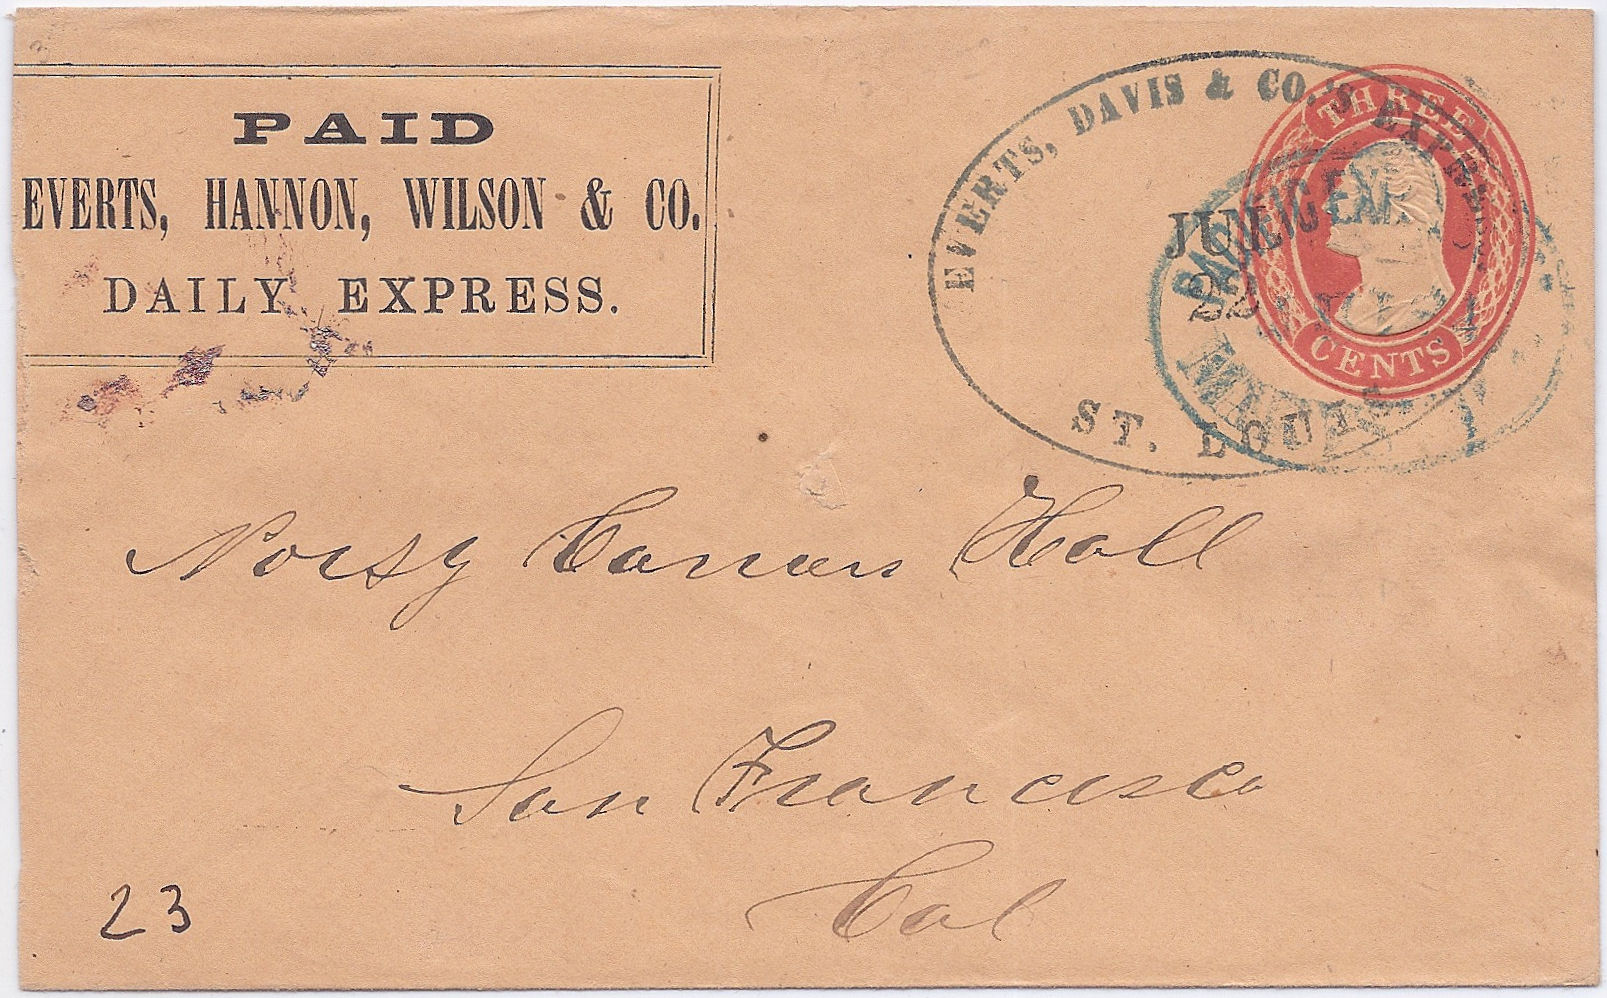 PAID
EVERTS, HANNON, WILSON & CO.
DAILY EXPRESS.
EVERTS, DAVIS & CO.'S EXPRESS.
JUN
22
ST. LOUIS
PACIFIC EX.
THREE
CENTS
Hall
San Francisco
Cal
23